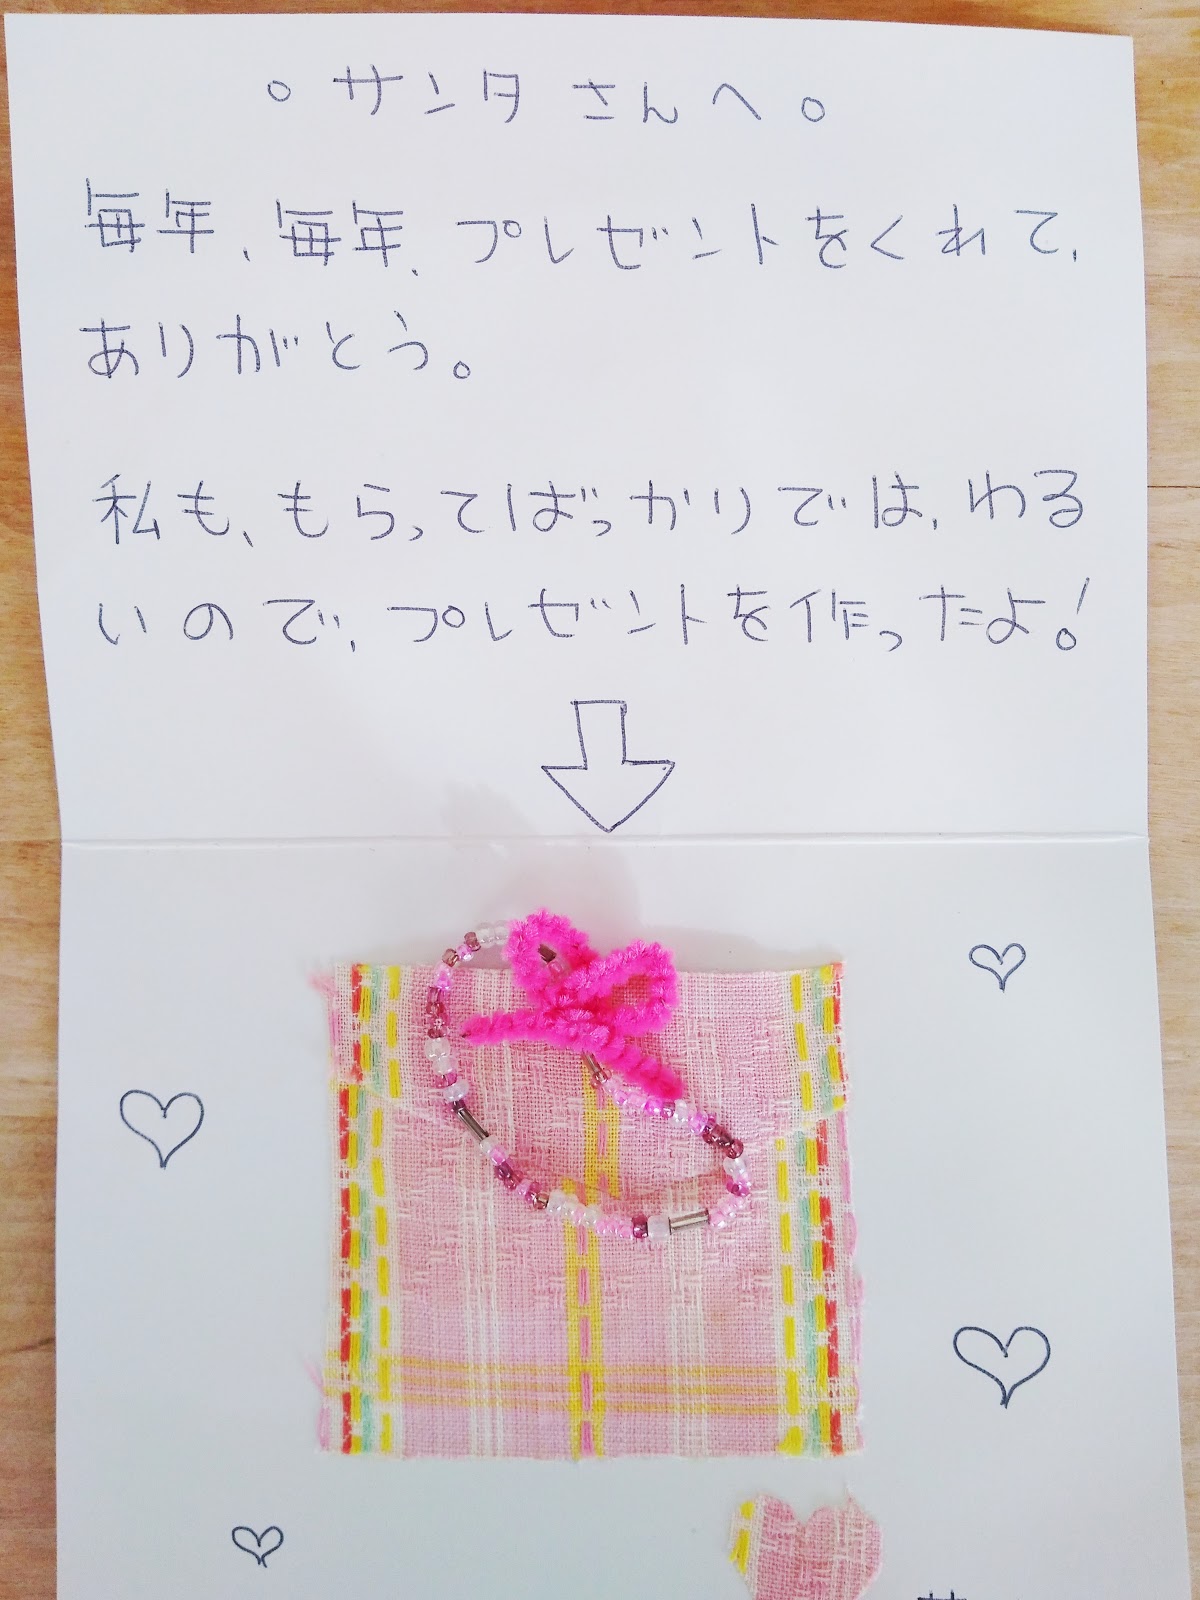 。サンタさんへ。
毎年、毎年、プレゼントをくれて、
ありがとう。
私も、もらってばっかりでは、わる
いので、プレゼントを作ったよ!